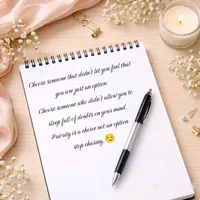 Choose someone that didn't let you feel that
you are just an option.
Choose someone who didn't allow you to
sleep full of doubts on your mind.
Priority is a choice not an option.
stop chasing 😢